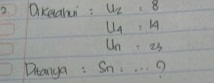 2. Diketahui : U2 : 8
U4 : 14
Un : 23
Ditanya : Sn : .... ?